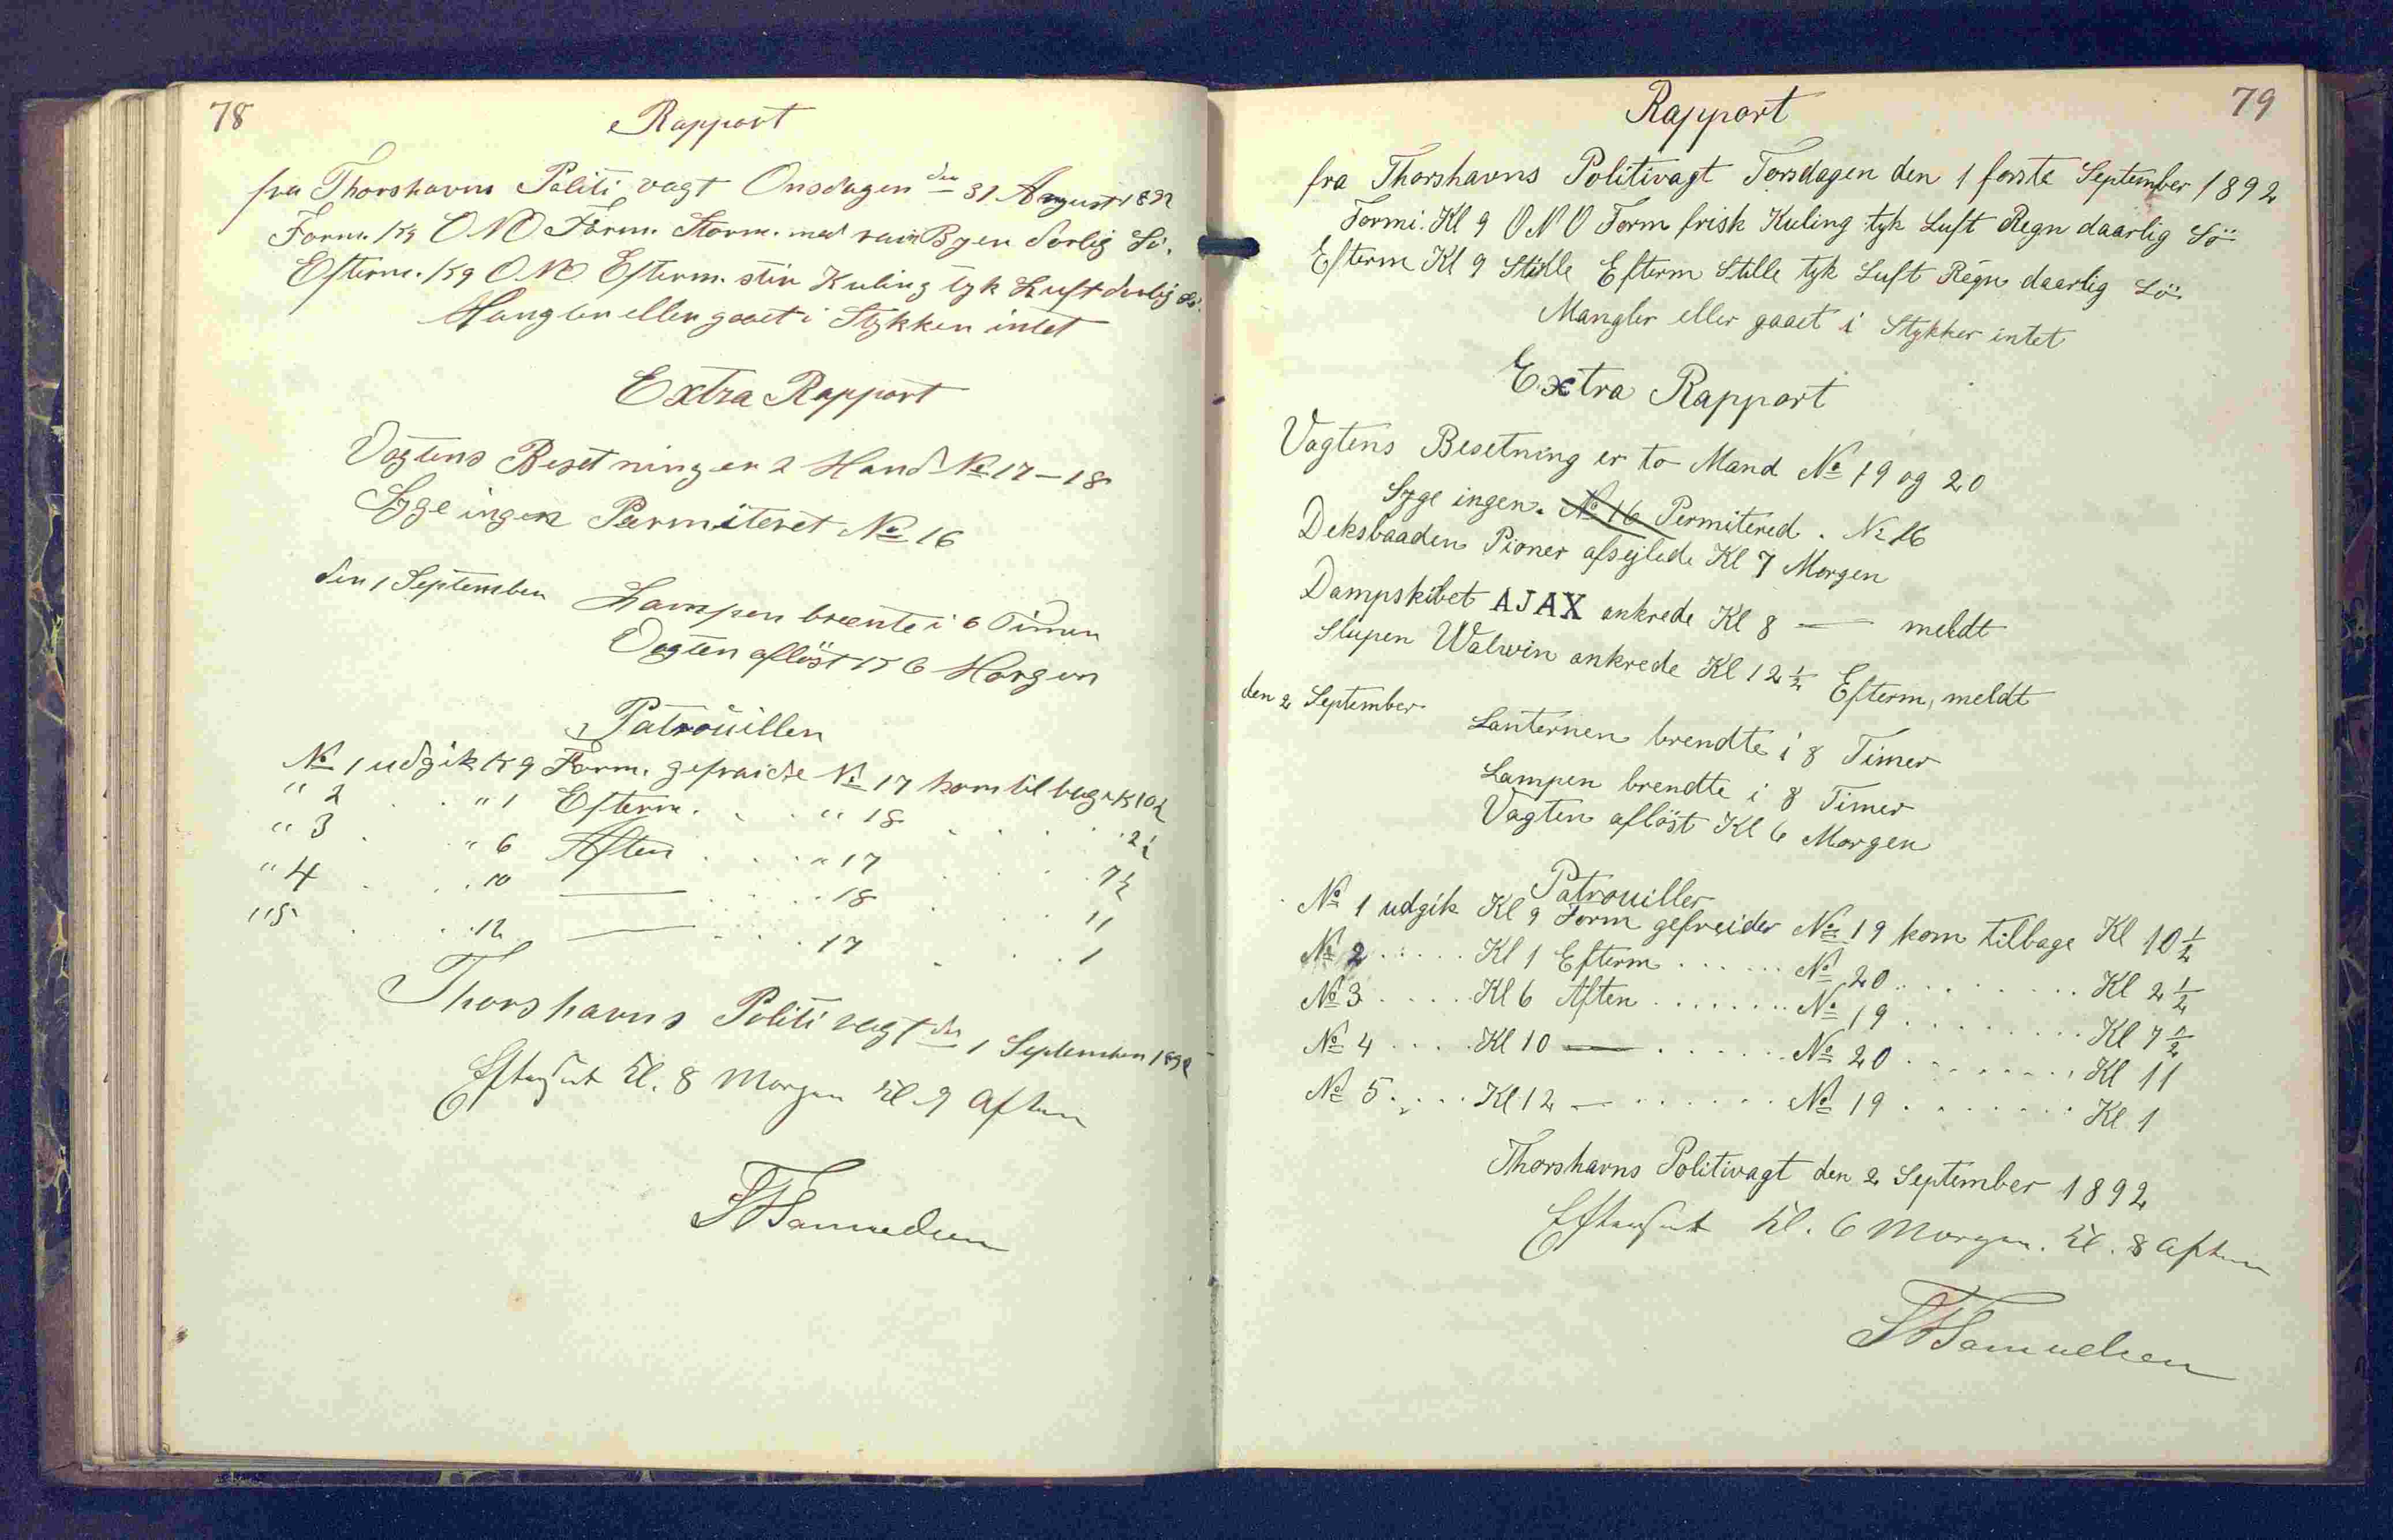 78
Rapport
fra Thorshavns Politi vagt Onsdagen den 31 August 1892
Form. Kl 9 ONO Form. Storm. med rain Byer dorlig Sö.
Efterm. Kl 9 ONO Efterm. stiv Kuling tyk Luft dorlig Sö.
Mangler eller gaaet i Stykker intet
Extra Rapport
Vagtens Besetning er 2 Mand No 17 – 18
Syge ingen Permiteret No 16
den 1 September Lampen brænte i 6 Timer
Vagten aflöst Kl 6 Morgen
Patrouiller
No 1 udgik Kl 9 Form. gefraider No 17 kom tilbage Kl 10½
" 2 . . " 1 Efterm. . . . " 18 . . . . . 2½
" 3 . . " 6 Aften . . . " 17 . . . 7½
" 4 . . . 10 — . . . . 18 . . . 11
" 5 . . . 12 — . . . . 17 . . . 1
Thorshavns Politi vagt den 1 September 1892
Efterseet Kl. 8 Morgen Kl. 9 Aften
Samuelsen
79
Rapport
fra Thorshavns Politivagt Torsdagen den 1 förste September 1892
Formi. Kl 9 ONO Form frisk Kuling tyk Luft Regn daarlig Sö
Efterm Kl 9 Stille Efterm Stille tyk Luft Regn daarlig Sö
Mangler eller gaaet i Stykker intet
Extra Rapport
Vagtens Besetning er to Mand No 19 og 20
Syge ingen. No 16 Permitered. No 16
Deksbaaden Pioner afsejlede Kl 7 Morgen
Dampskibet AJAX ankrede Kl 8 — meldt
Slupen Walwin ankrede Kl 12½ Efterm, meldt
den 2 September
Lanternen brendte i 8 Timer
Lampen brendte i 8 Timer
Vagten aflöst Kl 6 Morgen
Patrouiller
No 1 udgik Kl 9 Form gefreider No 19 kom tilbage Kl 10½
No 2 . . . . . Kl 1 Efterm . . . . . . No 20 . . . . . . . . Kl 2½
No 3 . . . . . Kl 6 Aften . . . . . . . No 19 . . . . . . . . Kl 7½
No 4 . . . . Kl 10 — . . . . . . No 20 . . . . . . . Kl 11
No 5 . . . . Kl 12 — . . . . . . No 19 . . . . . . . Kl 1
Thorshavns Politivagt den 2 September 1892
Efterseet Kl. 6 Morgen. Kl. 8 Aften
Samuelsen